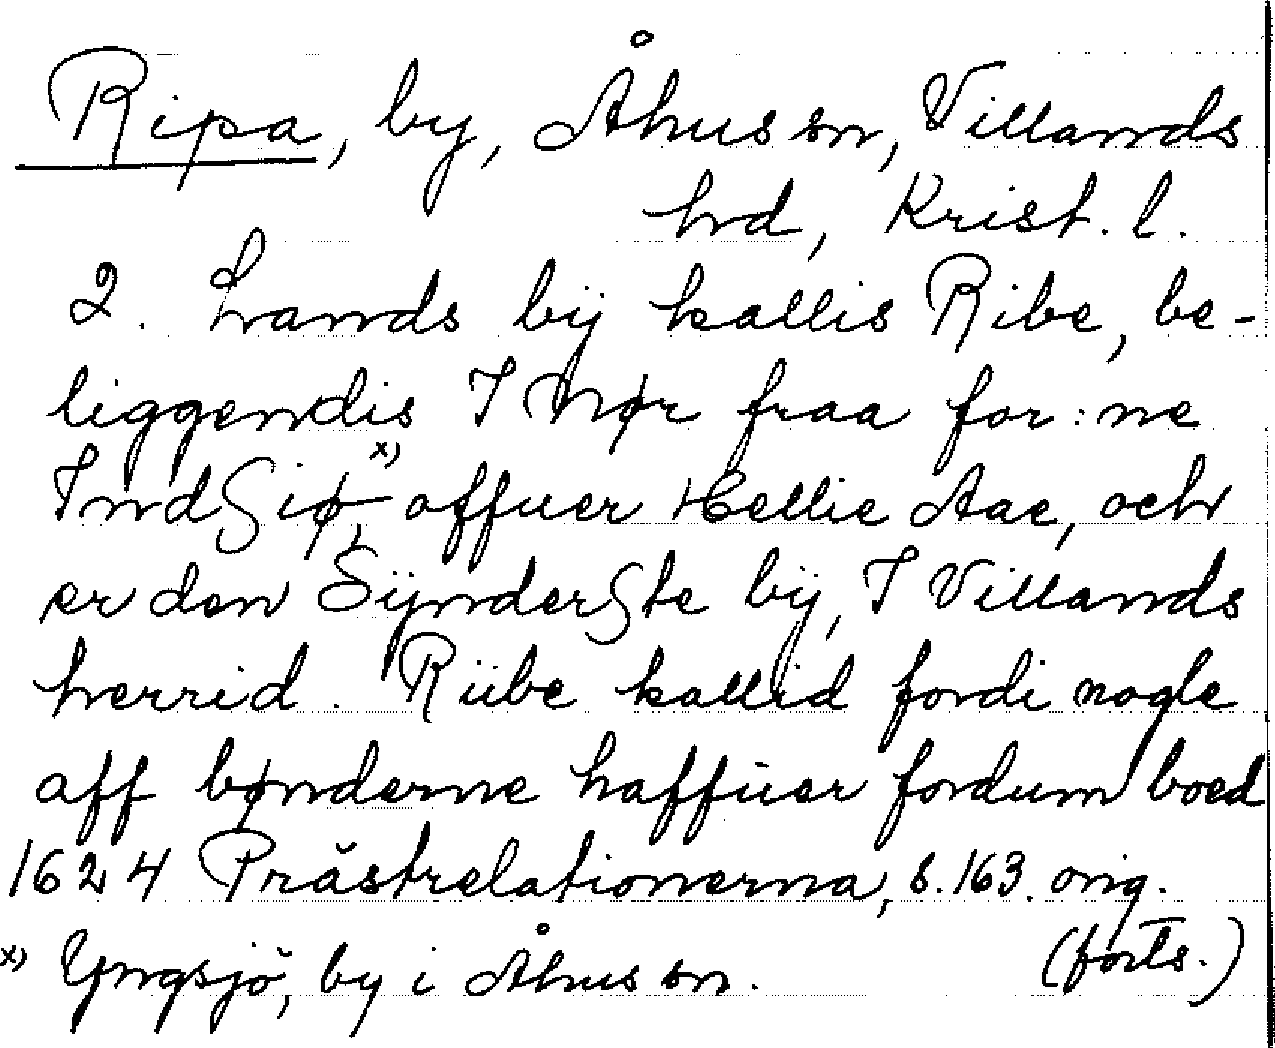 Ripa, by, Åhus sn, Villands
hrd, Krist. l.
2. Lands bÿ kallis Ribe, be-
liggendis I Nør fraa for:ne
IndSiø x) offuer Hellie Aae, och
er den SÿnderSte bÿ, I Villands
herrid. Riibe kallid fordi nogle
aff bønderne haffuer fordum boed
1624 Prästrelationerna, s. 163. orig.
x) Yngsjö, by i Åhus sn. (forts.)